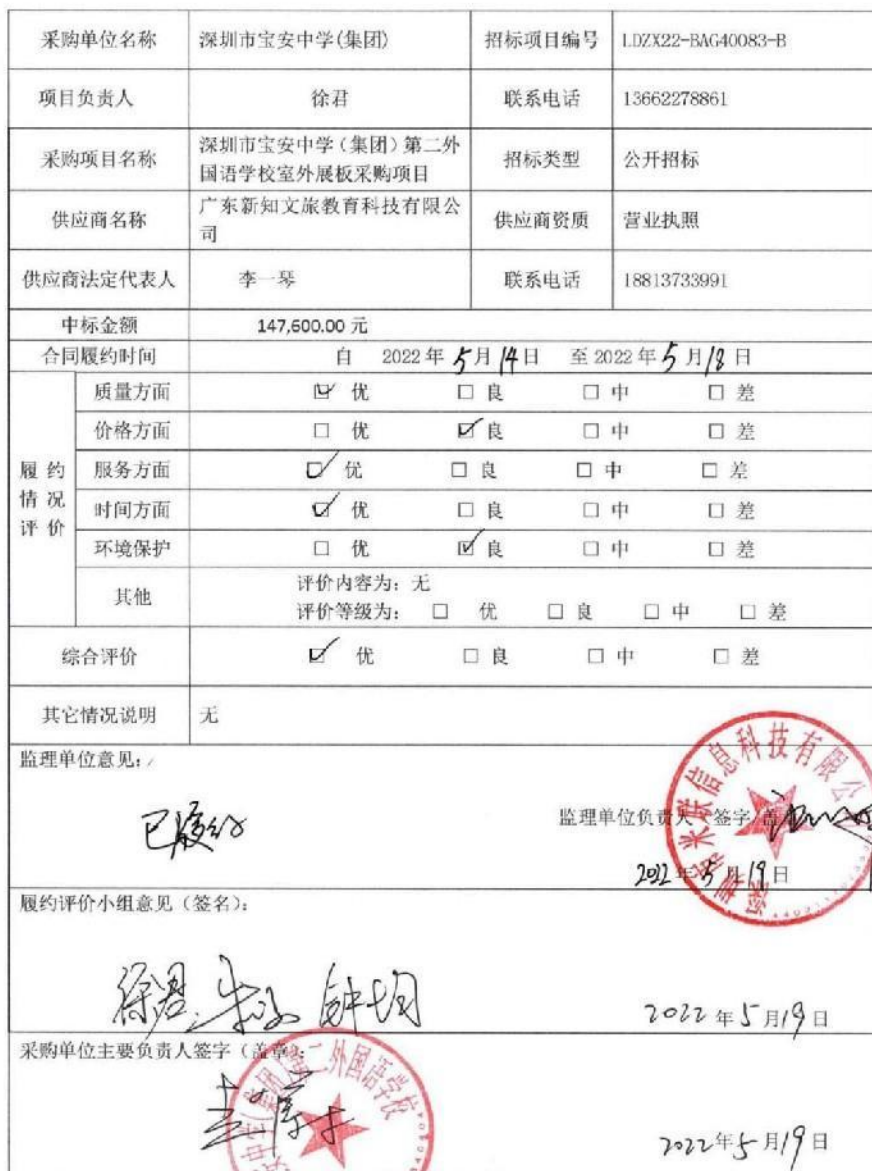 采购单位名称 深圳市宝安中学(集团) 招标项目编号 LDZX22-BAG40083-B
项目负责人 徐君 联系电话 13662278861
采购项目名称 深圳市宝安中学（集团）第二外国语学校室外展板采购项目 招标类型 公开招标
供应商名称 广东新知文旅教育科技有限公司 供应商资质 营业执照
供应商法定代表人 李一琴 联系电话 18813733991
中标金额 147,600.00 元
合同履约时间 自 2022 年 5 月 14 日 至 2022 年 5 月 18 日
履约情况评价
质量方面 ☑ 优 □ 良 □ 中 □ 差
价格方面 □ 优 ☑ 良 □ 中 □ 差
服务方面 ☑ 优 □ 良 □ 中 □ 差
时间方面 ☑ 优 □ 良 □ 中 □ 差
环境保护 □ 优 ☑ 良 □ 中 □ 差
其他 评价内容为：无
评价等级为： □ 优 □ 良 □ 中 □ 差
综合评价 ☑ 优 □ 良 □ 中 □ 差
其它情况说明 无
监理单位意见：
已履约
监理单位负责人 签字 盖
2022 年 5 月 19 日
信息科技有限公
履约评价小组意见（签名）：
徐君 钟均
2022 年 5 月 19 日
采购单位主要负责人签字（盖章）：
中学(集团)第二外国语学校
2022 年 5 月 19 日